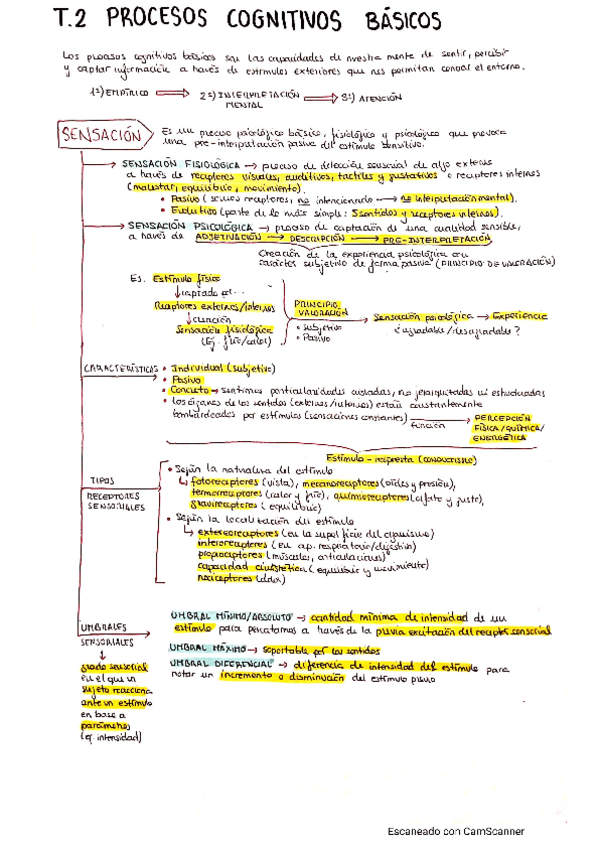 T.2 PROCESOS COGNITIVOS BÁSICOS
Los procesos cognitivos básicos son las capacidades de nuestra mente de sentir, percibir
y captar información a través de estímulos exteriores que nos permitan conocer el entorno.
1º) EMPÍRICO → 2º) INTERPRETACIÓN MENTAL → 3º) ATENCIÓN
SENSACIÓN
Es un proceso psicológico básico, fisiológico y psicológico que provoca
una pre-interpretación pasiva del estímulo sensitivo.
SENSACIÓN FISIOLÓGICA → proceso de detección sensorial de algo externo
a través de receptores visuales, auditivos, táctiles y gustativos o receptores internos
(malestar, equilibrio, movimiento).
• Pasivo (somos receptores, no intencionado → no interpretación mental).
• Evolutivo (parte de lo más simple: 5 sentidos y receptores internos).
SENSACIÓN PSICOLÓGICA → proceso de captación de una cualidad sensible,
a través de ADJETIVACIÓN → DESCRIPCIÓN → PRE-INTERPRETACIÓN
Creación de la experiencia psicológica con
carácter subjetivo de forma pasiva (PRINCIPIO DE VALORACIÓN)
Ej. Estímulo físico
↓ captado por...
Receptores externos/internos
↓ creación
Sensación fisiológica
(Ej. frío/calor)
PRINCIPIO VALORACIÓN
• Subjetivo
• Pasivo
→ Sensación psicológica → Experiencia
¿agradable/desagradable?
CARACTERÍSTICAS
• Individual (subjetivo)
• Pasivo
• Concreto → sentimos particularidades aisladas, no jerarquizadas ni estructuradas
• los órganos de los sentidos (externos/internos) están constantemente
bombardeados por estímulos (sensaciones constantes) → función
PERCEPCIÓN
FÍSICA/QUÍMICA/
ENERGÉTICA
Estímulo-respuesta (CONDUCTISMO)
TIPOS
RECEPTORES
SENSORIALES
• Según la naturaleza del estímulo
↳ fotoreceptores (vista), mecanoreceptores (oídos y presión),
termoreceptores (calor y frío), quimioreceptores (olfato y gusto),
gravireceptores (equilibrio)
• Según la localización del estímulo
↳ exteroreceptores (en la superficie del organismo)
interoreceptores (en ap. respiratorio/digestivo)
propioceptores (músculos, articulaciones)
capacidad cinestética (equilibrio y movimiento)
nociceptores (dolor)
UMBRALES
SENSORIALES
↓
grado sensorial
en el que un
sujeto reacciona
ante un estímulo
en base a
parámetros
(ej. intensidad)
UMBRAL MÍNIMO/ABSOLUTO → cantidad mínima de intensidad de un
estímulo para percatarnos a través de la previa excitación del receptor sensorial
UMBRAL MÁXIMO → soportable por los sentidos
UMBRAL DIFERENCIAL → diferencia de intensidad del estímulo para
notar un incremento o disminución del estímulo previo
Escaneado con CamScanner